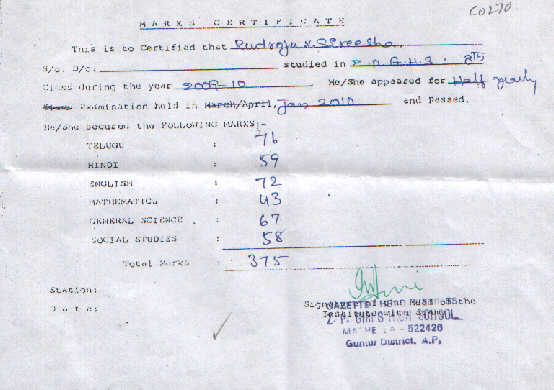 C0270
MARKS CERTIFICATE
This is to Certified that Pudroju Sireesha
S/o. D/o. studied in G.H.S. 8th
Class during the year 2009-10 He/She appeared for Half yearly
Examination held in March/April, Jan 2010 and Passed.
He/She secured the FOLLOWING MARKS:-
TELUGU : 76
HINDI : 59
ENGLISH : 72
MATHEMATICS : 43
GENERAL SCIENCE : 67
SOCIAL STUDIES : 58
Total Marks 375
Station:
Date:
Signature of the Head of the
Institute with
GAZETTED
Z.P. GIRLS HIGH SCHOOL
522426
Guntur District, A.P.